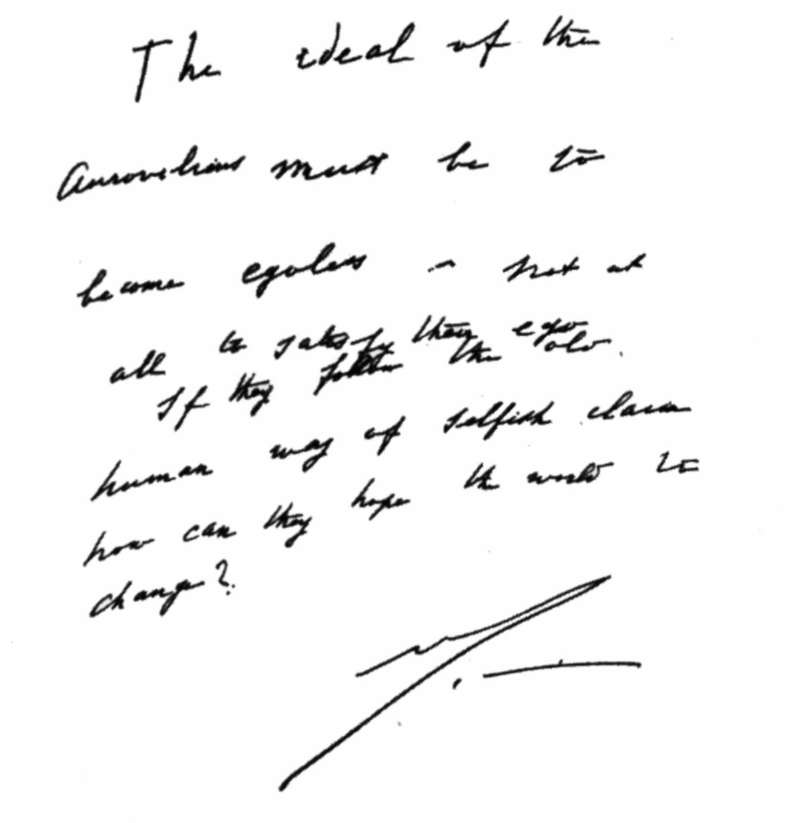 The ideal of the
Aurovilians must be to
become egoless - not at
all to satisfy their ego.
If they follow the old
human way of selfish claim
how can they hope the world to
change?